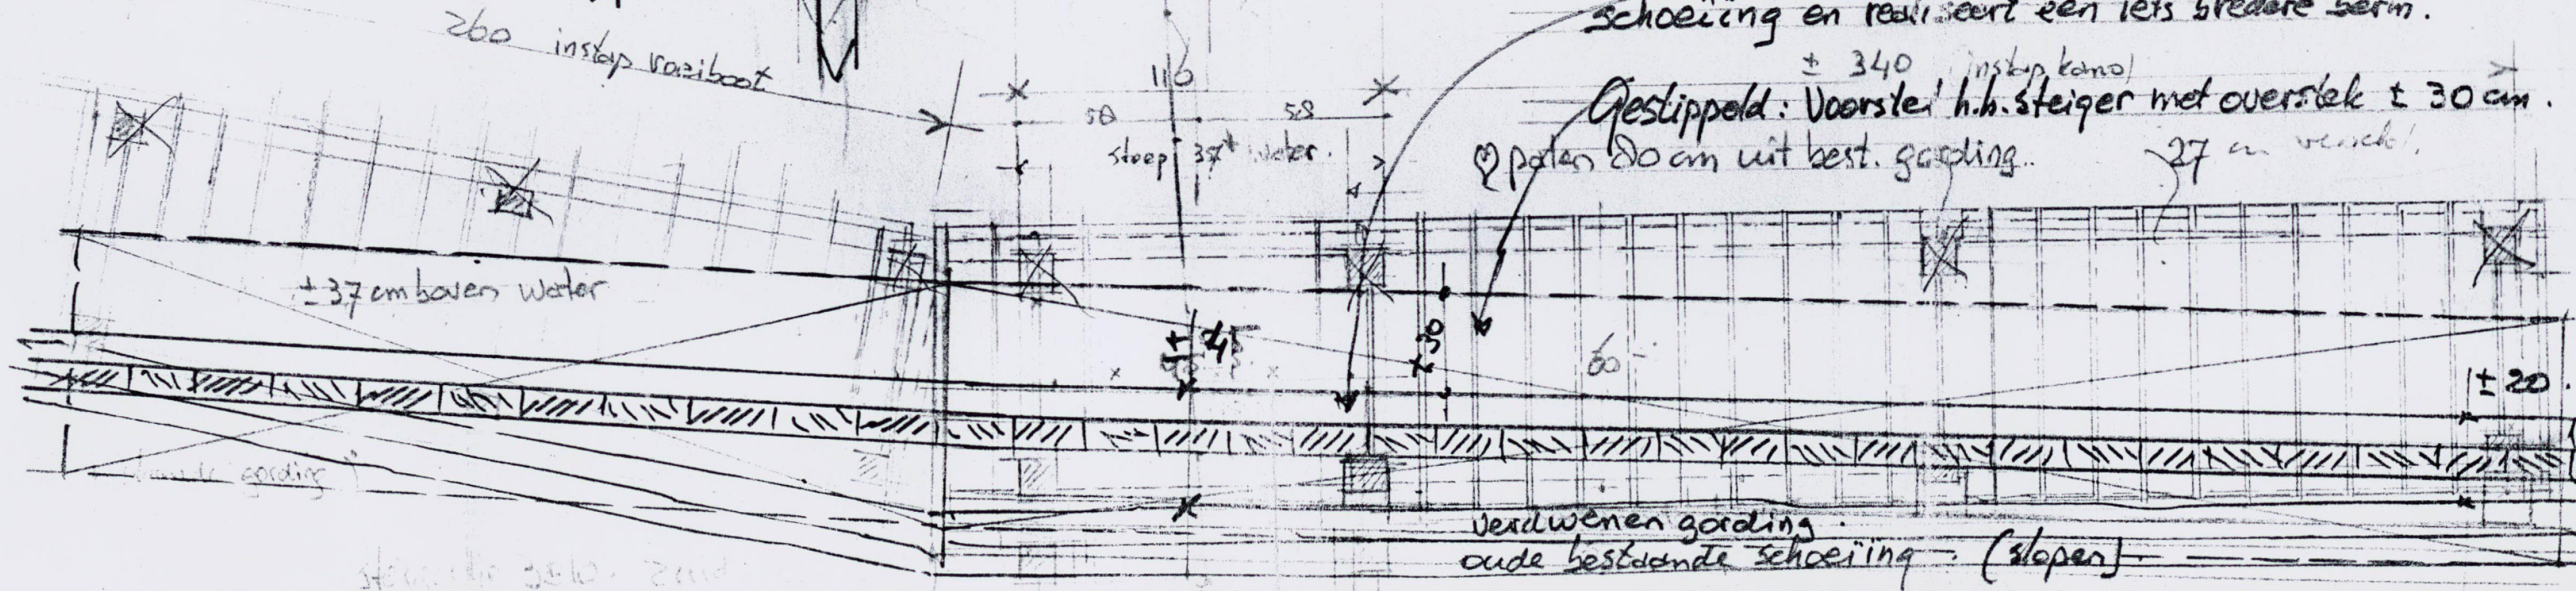 schoeiing en realiseert een iets bredere berm.
260 instap roeiboot
± 340 instap kano
110
Gestippeld: Voorstel h.h. steiger met overstek ± 30 cm.
58 58
stoep 37+ water.
palen 80 cm uit best. gording.
27 cm
± 37 cm boven water
± 30
60
± 20
gording
verdwenen gording.
oude bestaande schoeiing (slopen)